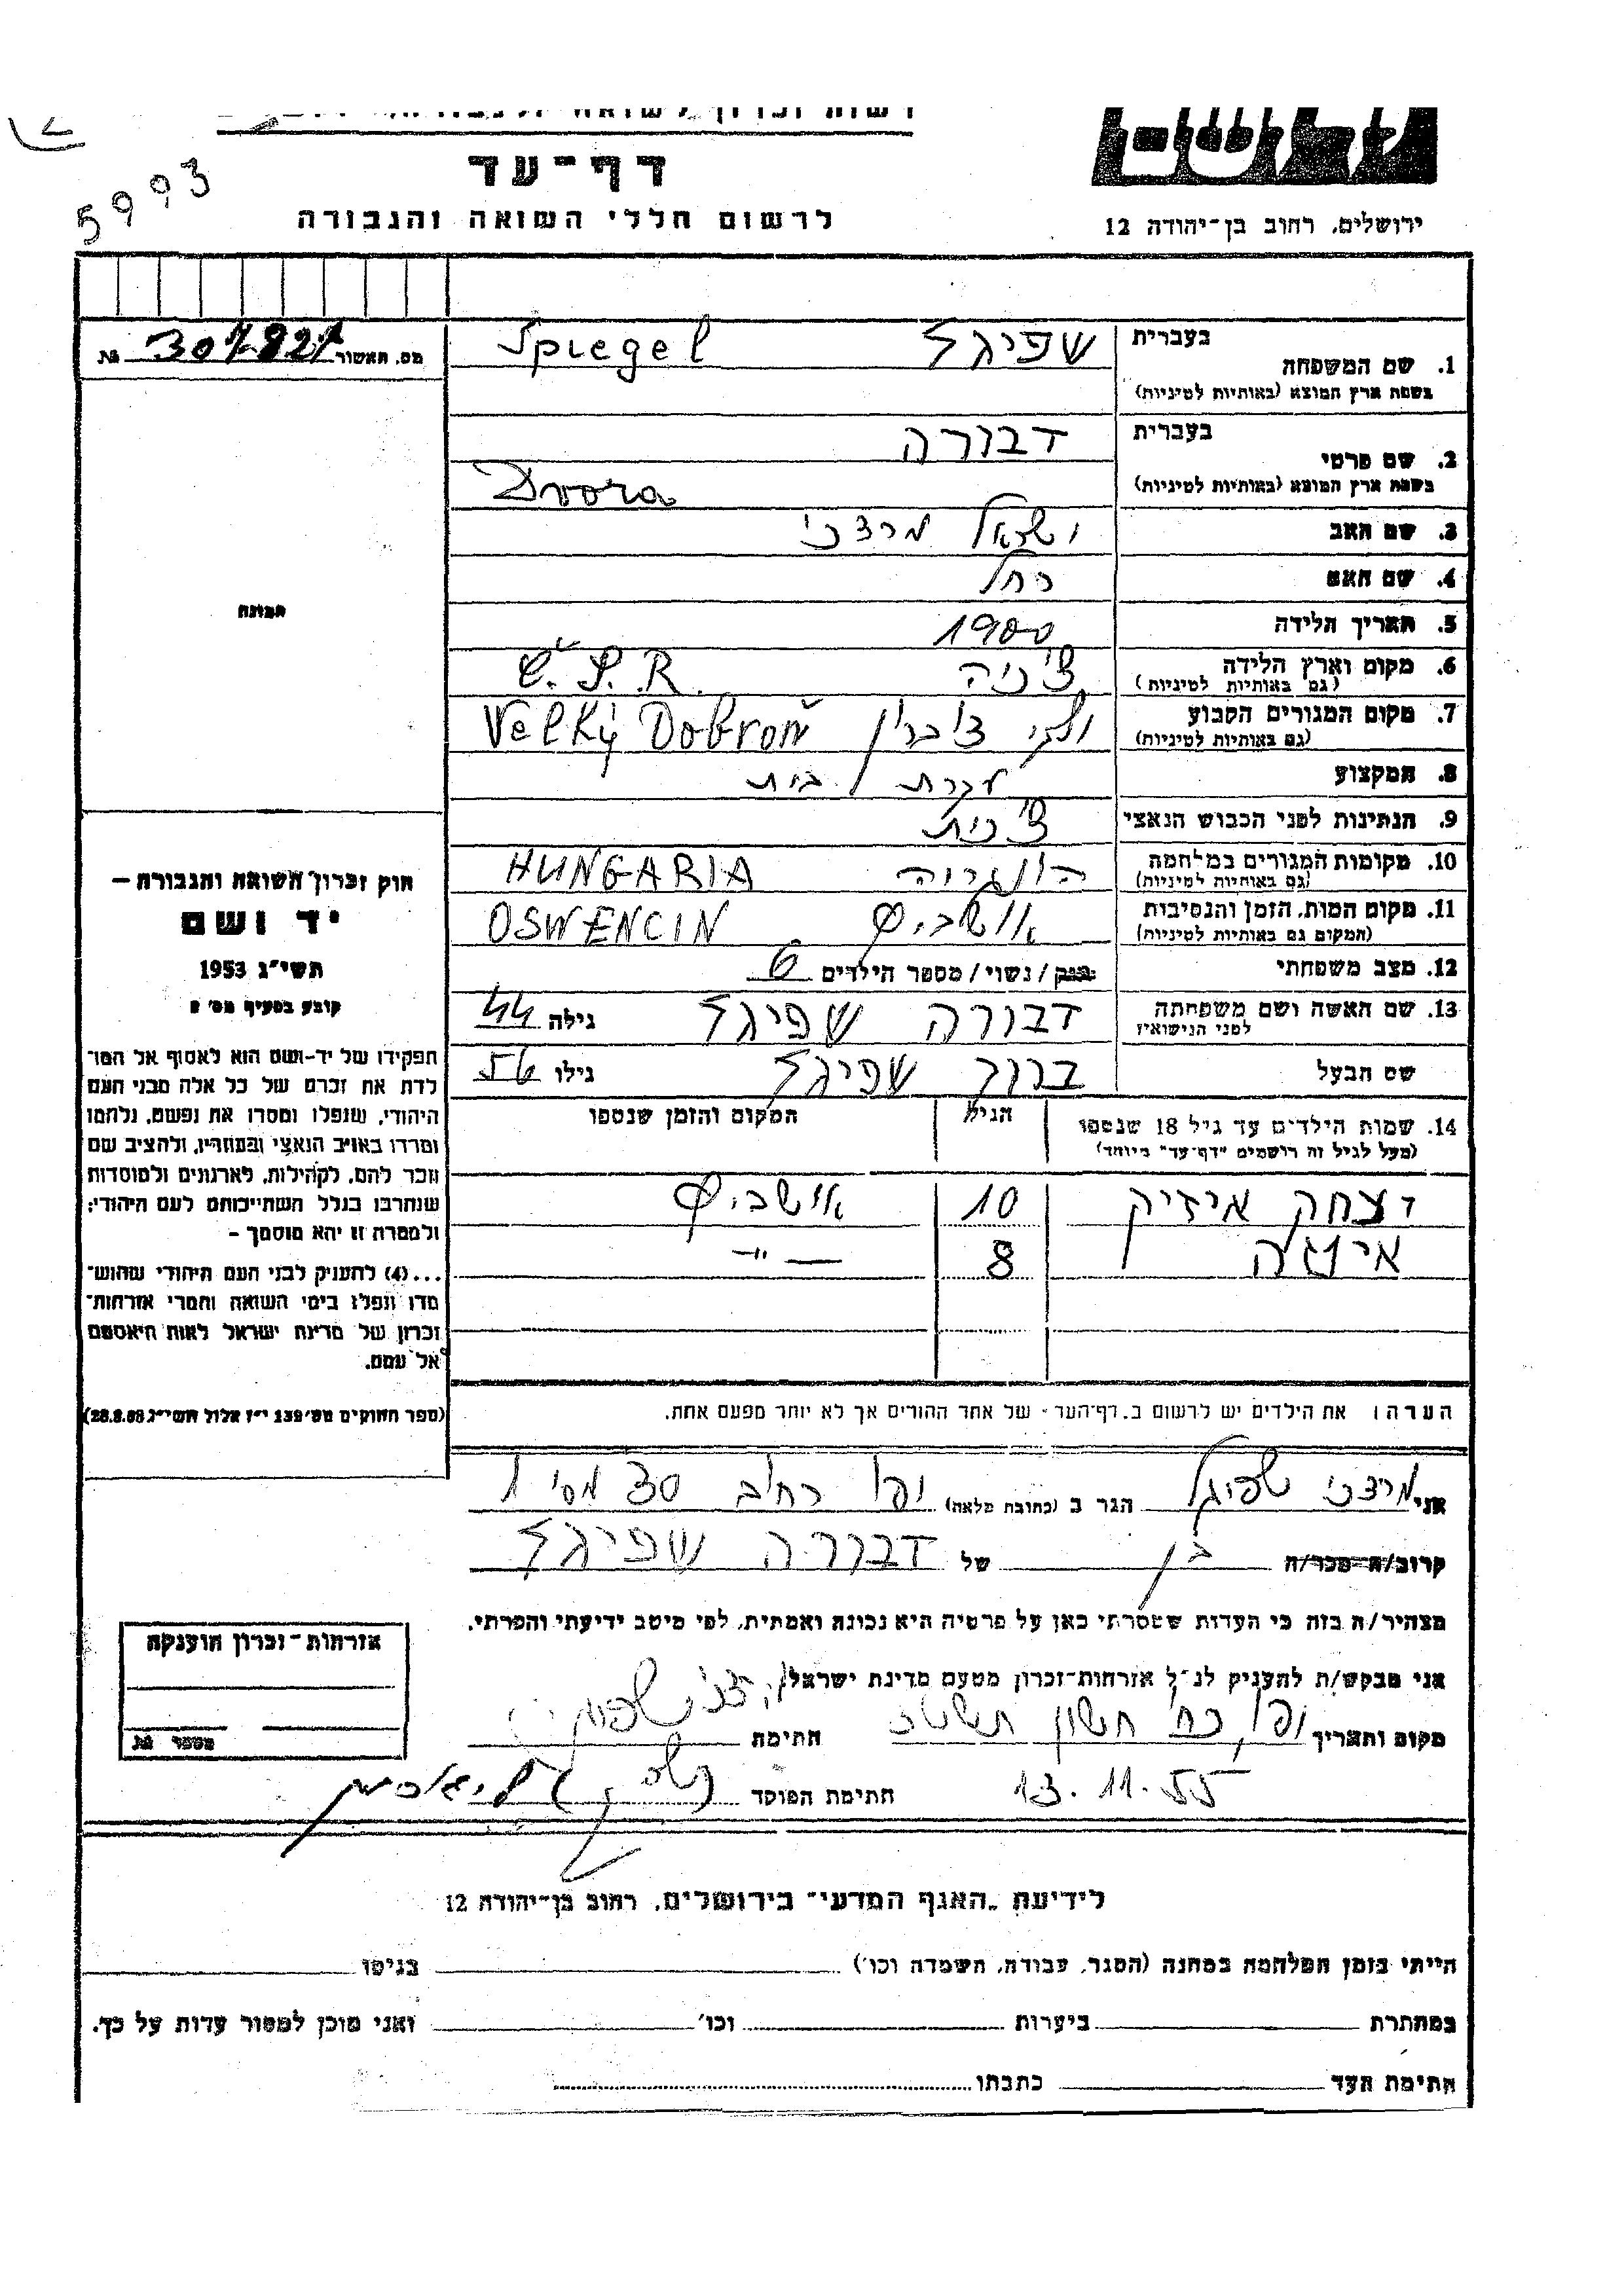 5993
דף־עד
לרשום חללי השואה והגבורה
ירושלים, רחוב בן־יהודה 12
מס. האשור
בעברית שפיגל Spiegel
1. שם המשפחה
בשפת ארץ המוצא (באותיות לטיניות)
בעברית דבורה
2. שם פרטי
בשפת ארץ המוצא (באותיות לטיניות) Dvora
3. שם האב ישראל מרדכי
4. שם האם רחל
5. תאריך הלידה 1900
6. מקום וארץ הלידה צ'כיה Č.S.R.
(גם באותיות לטיניות)
7. מקום המגורים הקבוע ולקי דוברון Velký Dobroň
(גם באותיות לטיניות)
8. המקצוע עקרת בית
9. הנתינות לפני הכבוש הנאצי צ'כית
10. מקומות המגורים במלחמה הונגריה HUNGARIA
(גם באותיות לטיניות)
11. מקום המות, הזמן והנסיבות אושביץ OSWENCIN
(המקום גם באותיות לטיניות)
12. מצב משפחתי רווק / נשוי / מספר הילדים 6
13. שם האשה ושם משפחתה דבורה שפיגל גילה 44
לפני הנישואין
שם הבעל ברוך שפיגל גילו 56
14. שמות הילדים עד גיל 18 שנספו הגיל המקום והזמן שנספו
(מעל לגיל זה רושמים "דף־עד" מיוחד)
יצחק אייזיק 10 אושביץ
8 — " —
הערה: את הילדים יש לרשום ב.דף־העד־ של אחד ההורים אך לא יותר מפעם אחת.
תמונה
חוק זכרון השואה והגבורה —
יד ושם
תשי״ג 1953
קובע בסעיף מס׳ 2
תפקידו של יד-ושם הוא לאסוף אל המו־
לדת את זכרם של כל אלה מבני העם
היהודי, שנפלו ומסרו את נפשם, נלחמו
ומרדו באויב הנאצי ובעוזריו, ולהציב שם
וזכר להם, לקהילות, לארגונים ולמוסדות
שנחרבו בגלל השתייכותם לעם היהודי;
ולמטרה זו יהא מוסמך —
...(4) להעניק לבני העם היהודי שהוש־
מדו ונפלו בימי השואה והמרי אזרחות־
זכרון של מדינת ישראל לאות היאספם
אל עמם.
אני מרדכי שפיגל הגר ב (כתובת מלאה) יפו רחוב 30
קרוב/ה מכר/ה בן של דבורה שפיגל
מצהיר/ה בזה כי העדות שמסרתי כאן על פרטיה היא נכונה ואמתית, לפי מיטב ידיעתי והכרתי.
אני מבקש/ת להעניק לנ״ל אזרחות־זכרון מטעם מדינת ישראל
מקום ותאריך יפו, כח' חשון חתימת
13.11.55 חתימת הפוקד
אזרחות־זכרון הוענקה
מספר
לידיעת .האגף המדעי־ בירושלים, רחוב בן־יהודה 12
הייתי בזמן המלחמה במחנה (הסגר, עבודה, השמדה וכו׳) בגיטו
במחתרת ביערות וכו׳ ואני מוכן למסור עדות על כך.
חתימת העד כתבתו